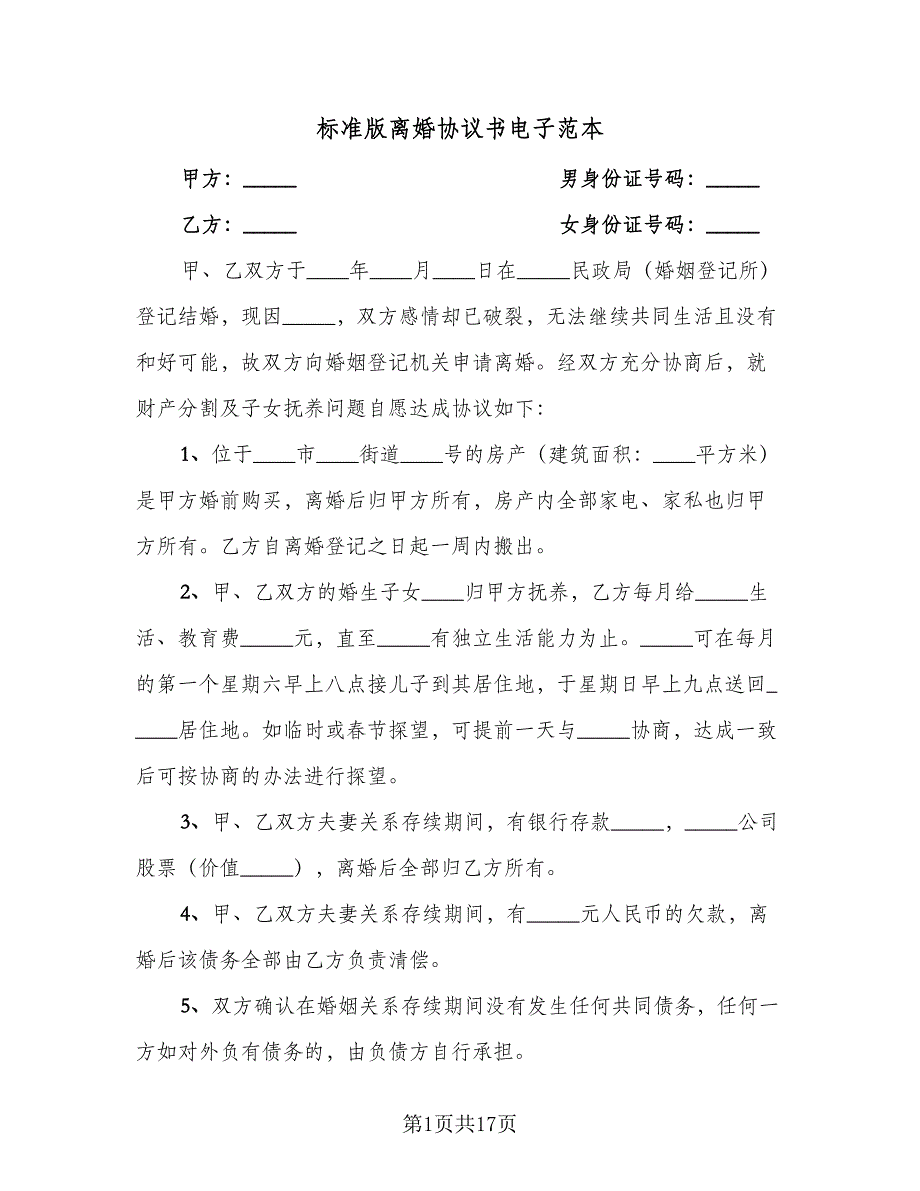 标准版离婚协议书电子范本
甲方：_____ 男身份证号码：_____
乙方：_____ 女身份证号码：_____
甲、乙双方于____年____月____日在_____民政局（婚姻登记所）
登记结婚，现因_____，双方感情却已破裂，无法继续共同生活且没有
和好可能，故双方向婚姻登记机关申请离婚。经双方充分协商后，就
财产分割及子女抚养问题自愿达成协议如下：
1、位于____市____街道____号的房产（建筑面积：____平方米）
是甲方婚前购买，离婚后归甲方所有，房产内全部家电、家私也归甲
方所有。乙方自离婚登记之日起一周内搬出。
2、甲、乙双方的婚生子女____归甲方抚养，乙方每月给_____生
活、教育费_____元，直至_____有独立生活能力为止。_____可在每月
的第一个星期六早上八点接儿子到其居住地，于星期日早上九点送回_
____居住地。如临时或春节探望，可提前一天与_____协商，达成一致
后可按协商的办法进行探望。
3、甲、乙双方夫妻关系存续期间，有银行存款_____，_____公司
股票（价值_____），离婚后全部归乙方所有。
4、甲、乙双方夫妻关系存续期间，有_____元人民币的欠款，离
婚后该债务全部由乙方负责清偿。
5、双方确认在婚姻关系存续期间没有发生任何共同债务，任何一
方如对外负有债务的，由负债方自行承担。
第1页共17页